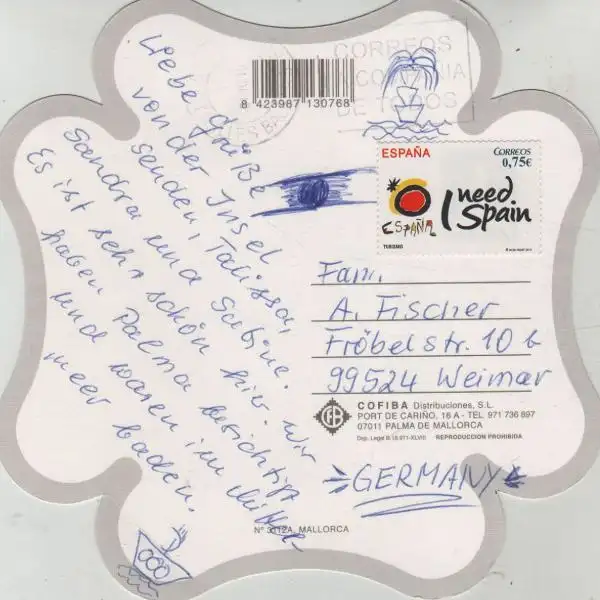 Liebe Grüße
von der Insel
senden, Talissa,
Sandra und Sabine.
Es ist sehr schön hier. Wir
haben Palma besichtigt
und waren im Mittel-
meer baden.
8 423987 130768
CORREOS
COMPAÑIA
DE TODOS
ESPAÑA
CORREOS
0,75€
I need
Spain
ESPAÑA
TURISMO
Fam.
A. Fischer
Fröbelstr. 10 b
99524 Weimar
COFIBA Distribuciones, S.L.
PORT DE CARIÑO, 16 A - TEL. 971 736 897
07011 PALMA DE MALLORCA
Dep. Legal B 15.971-XLVIII REPRODUCCION PROHIBIDA
GERMANY
Nº 3112A, MALLORCA